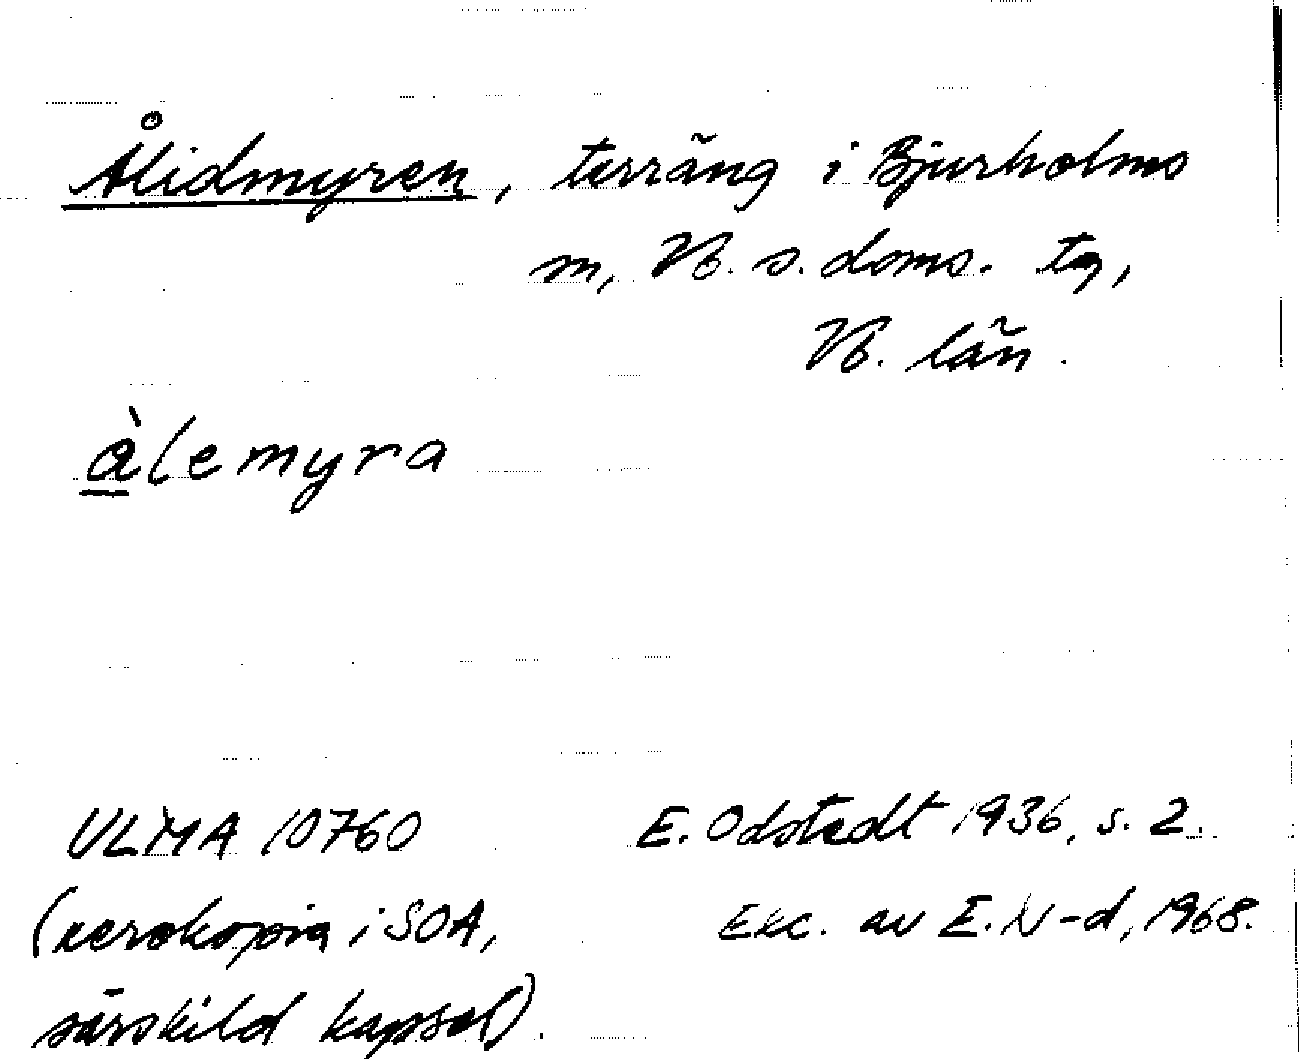 Ålidmyren, terräng i Bjurholms
m, Vb. s. doms. tg,
Vb. län.
àlemyra
ULMA 10760 E. Odstedt 1936, s. 2.
(xerokopia i SOA, Exc. av E. N-d, 1968.
särskild kapsel).